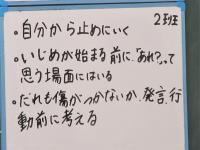 2班
・自分から止めにいく
・いじめが始まる前に、「あれ?」って
思う場面にはいる
・だれも傷がつかないか、発言、行
動前に考える